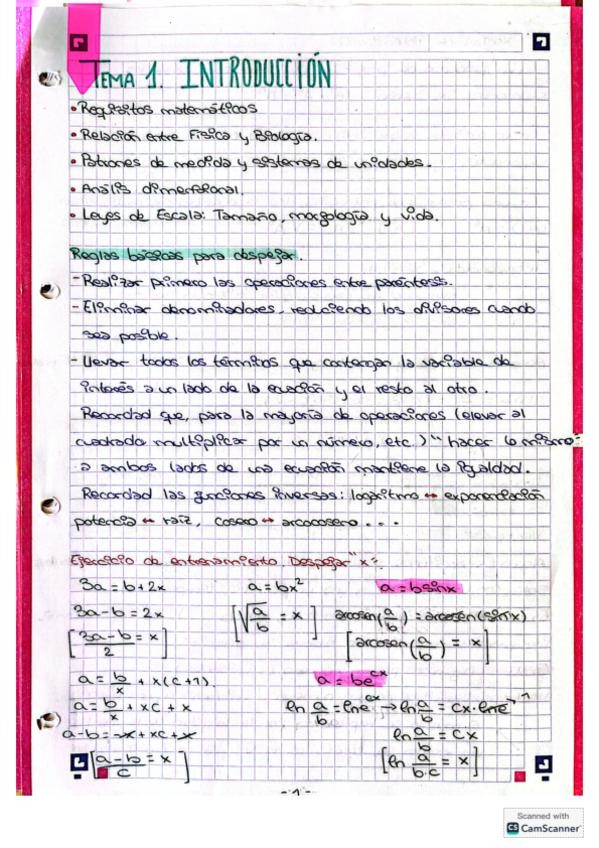 TEMA 1. INTRODUCCIÓN
• Requisitos matemáticos
• Relación entre Física y Biología.
• Patrones de medida y sistemas de unidades.
• Anális dimensional.
• Leyes de Escala: Tamaño, morfología y vida.
Reglas básicas para despejar.
- Realizar primero las operaciones entre paréntesis.
- Eliminar denominadores, reduciendo los divisores cuando
sea posible.
- Llevar todos los términos que contengan la variable de
interés a un lado de la ecuación y el resto al otro.
Recordad que, para la mayoría de operaciones (elevar al
cuadrado, multiplicar por un número, etc.) "hacer lo mismo"
a ambos lados de una ecuación mantiene la igualdad.
Recordad las funciones inversas: logaritmo ↔ exponenciación
potencia ↔ raíz, coseno ↔ arcocoseno...
Ejercicio de entrenamiento. Despejar "x":
3a = b + 2x   a = bx²   a = b sinx
3a - b = 2x   [√(a/b) = x]   arcosen(a/b) = arcosen(sinx)
[(3a - b)/2 = x]   [arcosen(a/b) = x]
a = b/x + x(c+1).   a = be^cx
a = b/x + xc + x   ln a/b = lne^cx → ln a/b = cx · lne → 1
a - b = -x + xc + x   ln a/b = cx
[(a - b)/c = x]   [ln a/(b·c) = x]
- 1 -
Scanned with
CS CamScanner